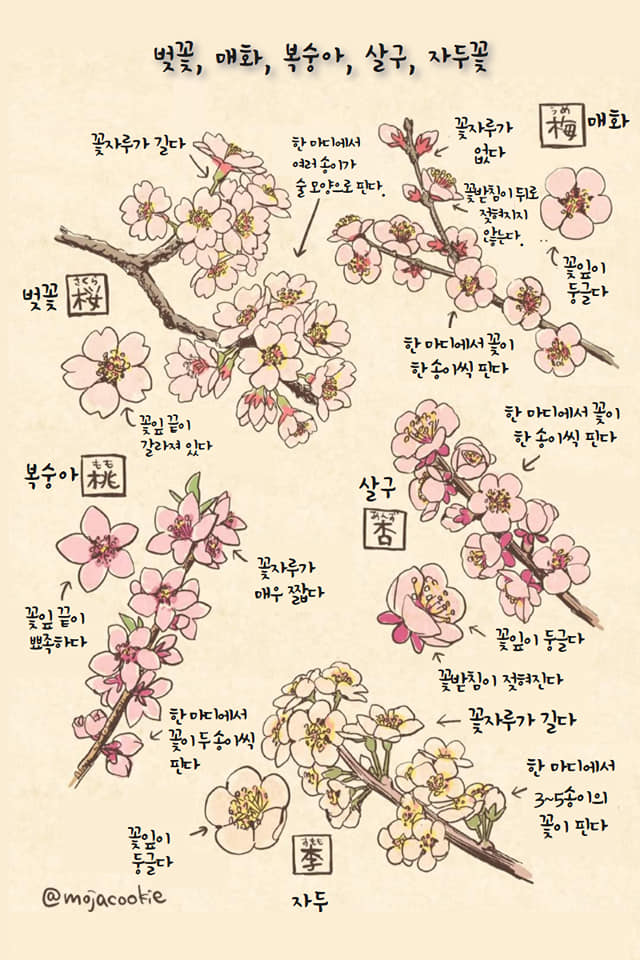 벚꽃, 매화, 복숭아, 살구, 자두꽃
꽃자루가 길다
한 마디에서
여러 송이가
술 모양으로 핀다.
벚꽃
さくら
桜
꽃잎 끝이
갈라져 있다
うめ
梅
매화
꽃자루가
없다
꽃받침이 뒤로
젖혀지지
않는다.
꽃잎이
둥글다
한 마디에서 꽃이
한 송이씩 핀다
복숭아
もも
桃
꽃잎 끝이
뾰족하다
꽃자루가
매우 짧다
한 마디에서
꽃이 두송이씩
핀다
살구
あんず
杏
한 마디에서 꽃이
한 송이씩 핀다
꽃잎이 둥글다
꽃받침이 젖혀진다
꽃자루가 길다
한 마디에서
3~5송이의
꽃이 핀다
꽃잎이
둥글다
すもも
李
자두
@mojacookie